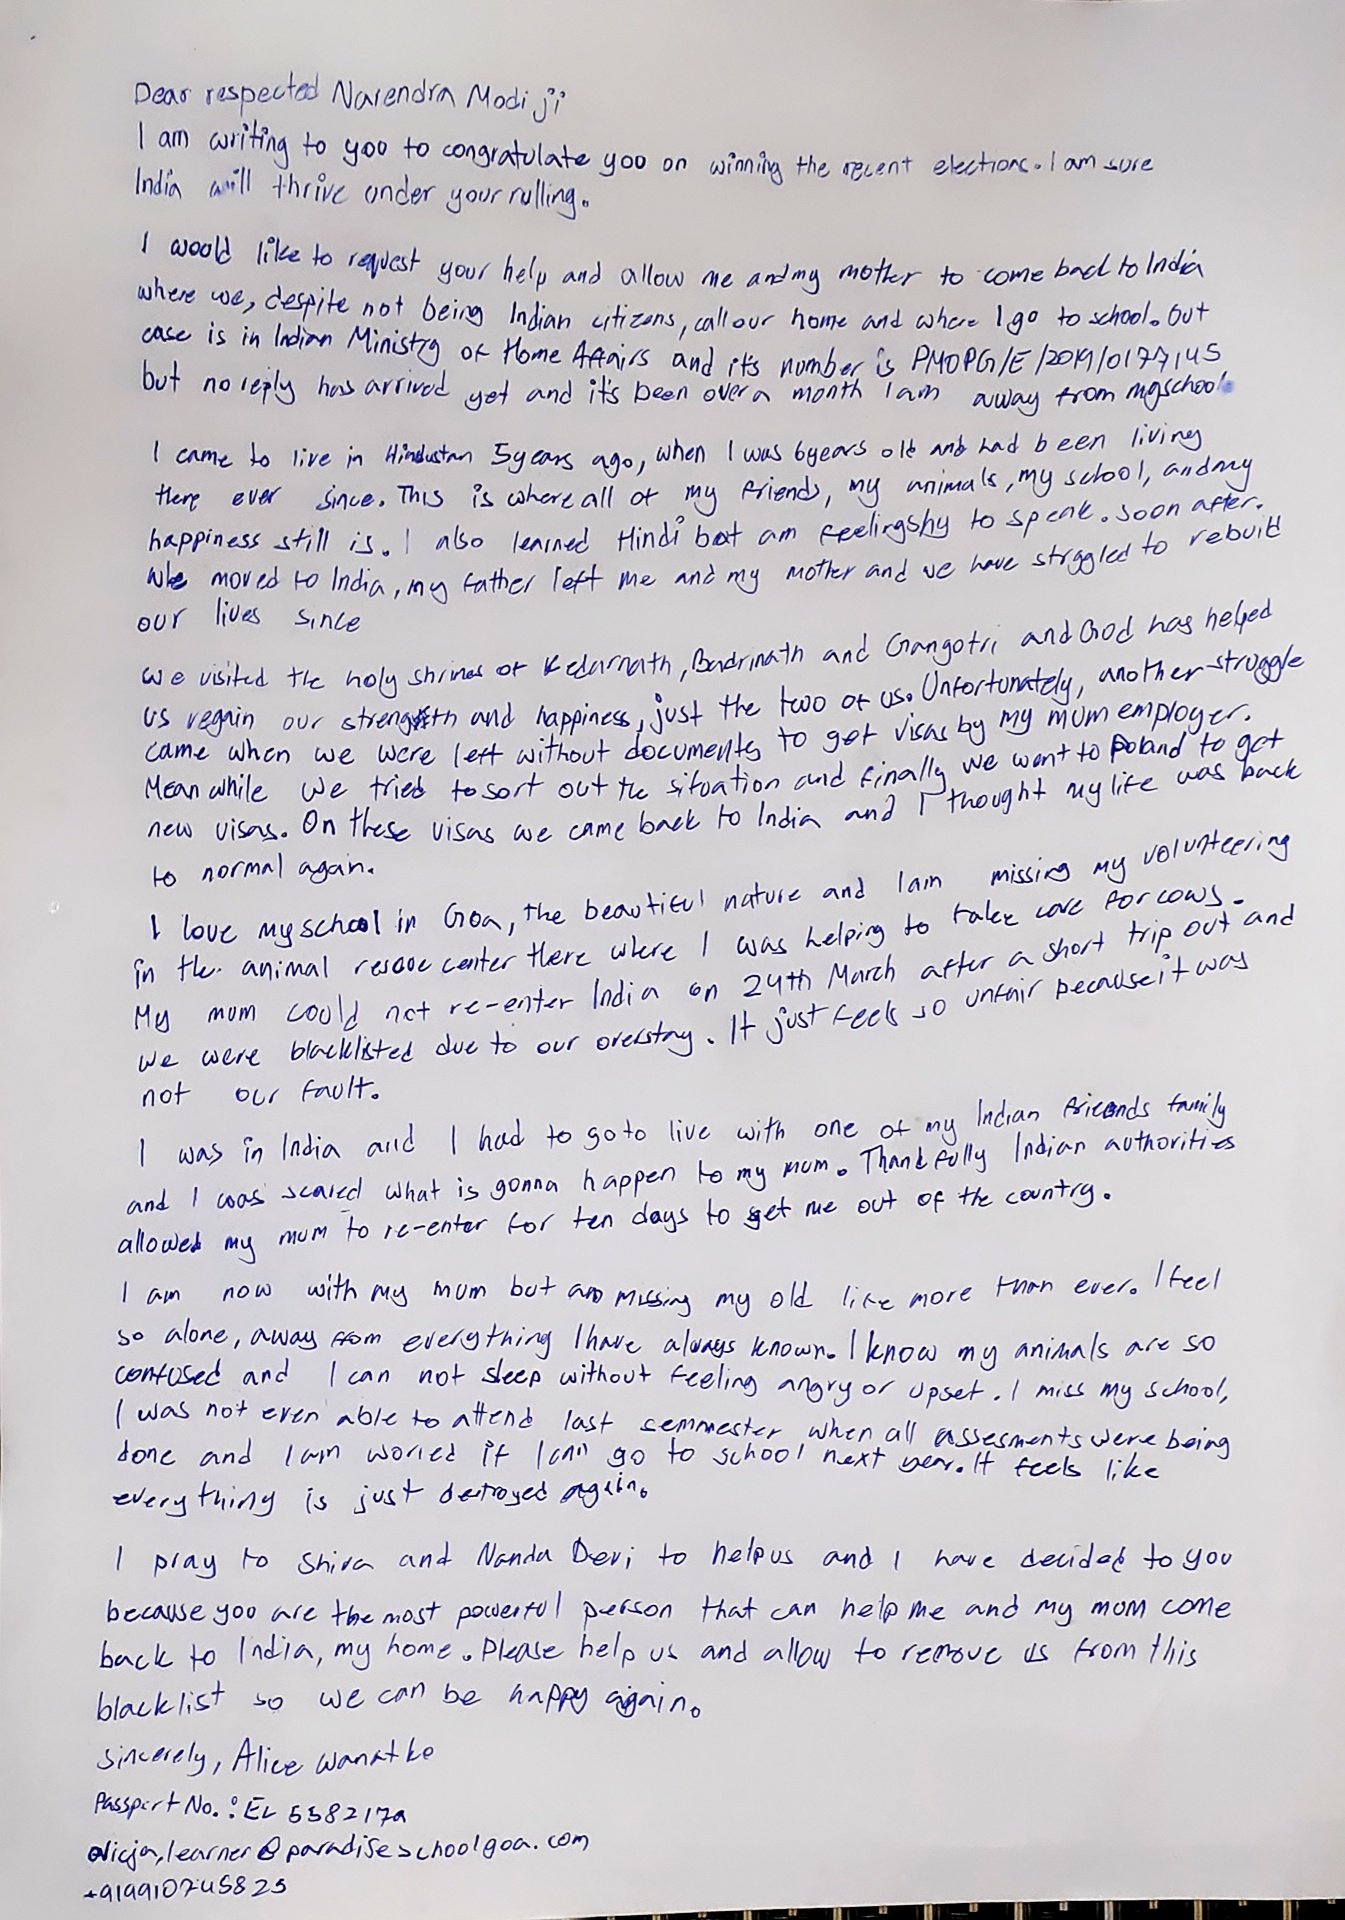 Dear respected Narendra Modi ji
I am writing to you to congratulate you on winning the recent elections. I am sure
India will thrive under your rulling.
I would like to request your help and allow me and my mother to come back to India
where we, despite not being Indian citizens, call our home and where I go to school. Out
case is in Indian Ministry of Home Affairs and it's number is PMOPG/E/2019/0177145
but no reply has arrived yet and it's been over a month I am away from my school.
I came to live in Hindustan 5 years ago, when I was 6 years old and had been living
there ever since. This is where all of my friends, my animals, my school, and my
happiness still is. I also learned Hindi but am feeling shy to speak. Soon after.
we moved to India, my father left me and my mother and we have strggled to rebuild
our lives since
We visited the holy shrines of Kedarnath, Badrinath and Gangotri and God has helped
us regain our strength and happiness, just the two of us. Unfortunately, another struggle
came when we were left without documents to get visas by my mum employer.
Mean while we tried to sort out the situation and finally we went to Poland to get
new visas. On these visas we came back to India and I thought my life was back
to normal again.
I love my school in Goa, the beautiful nature and I am missing my volunteering
in the animal rescue center there where I was helping to take care for cows.
My mum could not re-enter India on 24th March after a short trip out and
we were blacklisted due to our overstay. It just feels so unfair because it was
not our fault.
I was in India and I had to go to live with one of my Indian friends family
and I was scared what is gonna happen to my mum. Thankfully Indian authorities
allowed my mum to re-enter for ten days to get me out of the country.
I am now with my mum but am missing my old life more than ever. I feel
so alone, away from everything I have always known. I know my animals are so
confused and I can not sleep without feeling angry or upset. I miss my school,
I was not even able to attend last semmester when all assesments were being
done and I am woried if I can go to school next year. It feels like
everything is just destroyed again.
I pray to Shiva and Nanda Devi to help us and I have decided to you
because you are the most powerful person that can help me and my mum come
back to India, my home. Please help us and allow to remove us from this
blacklist so we can be happy again.
Sincerely, Alice Wanatko
Passport No.: 
alicja.learner@paradiseschoolgoa.com
+919910745825